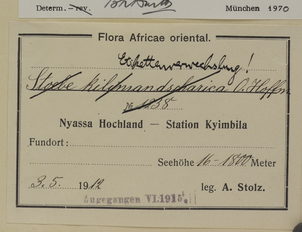 Determ.—rev. München 1970
Flora Africae oriental.
Etikettenverwechslung!
Stoebe kilimandscharica O. Hoffm
Nyassa Hochland — Station Kyimbila
Fundort:
Seehöhe 16-1800 Meter
3.5. 1912 leg. A. Stolz.
Zugegangen VI.1915